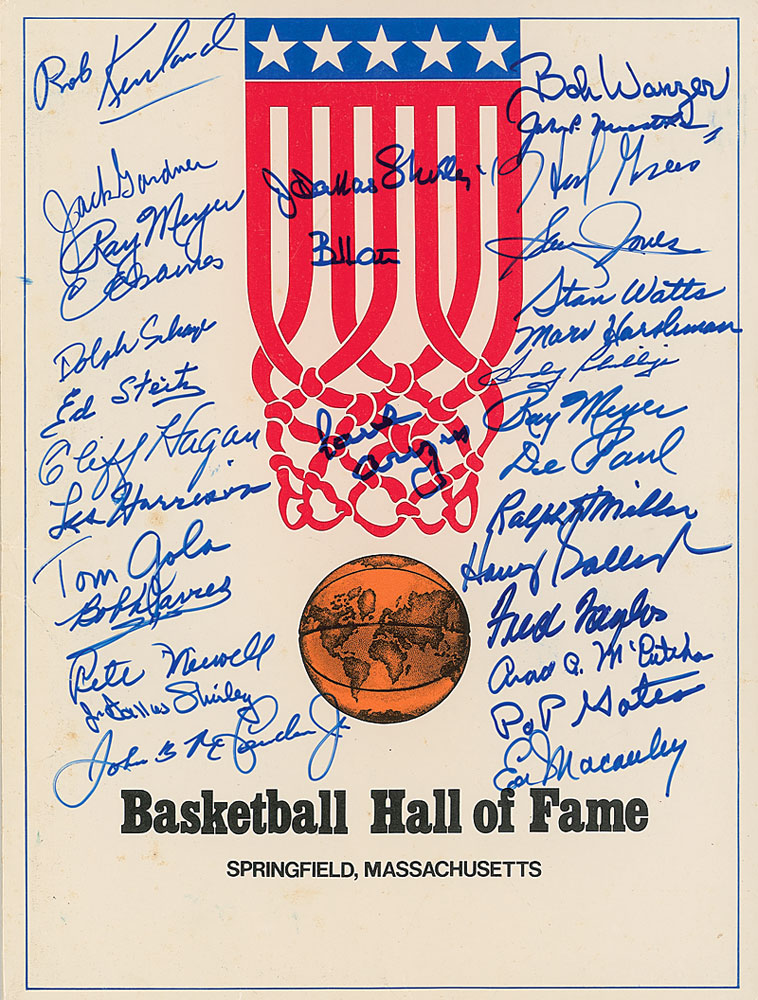 Bob Kurland
Jack Gardner
Ray Meyer
Dolph Schayes
Ed Steitz
Cliff Hagan
Les Harrison
Tom Gola
Bob Davies
Pete Newell
J. Dallas Shirley
John B McLendon Jr.
J Dallas Shirley
Bob Wanzer
Hal Greer
Sam Jones
Stan Watts
Marv Harshman
Andy Phillip
Ray Meyer
De Paul
Ralph Miller
Harry Gallatin
Fred Taylor
Arad A. McCutchan
Pop Gates
Ed Macauley
Basketball Hall of Fame
SPRINGFIELD, MASSACHUSETTS